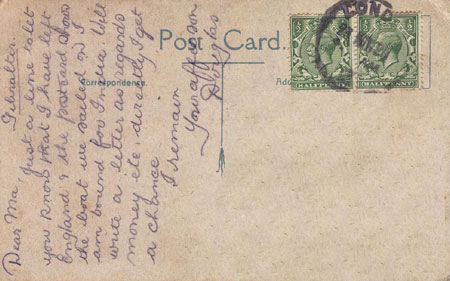 Post Card.
Correspondence.
LOND
HALFPENNY
HALFPENNY
Gibraltar.
Dear Ma
Just a line to let
you know that I have left
England & the postcard shows
the boat we sailed on. I
am bound for India. Will
write a letter as regards
money etc, directly I get
a chance.
I remain
Your aff son
Douglas